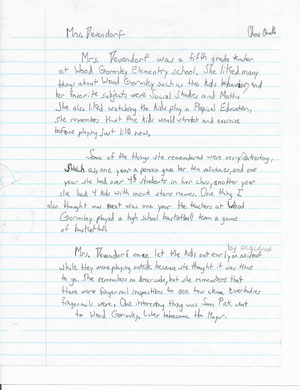 Mrs. Devendorf
Mrs. Devendorf was a fifth grade teacher
at Wood Gormley Elementry school. She liked many
thing about Wood Gormley such as the kids behavior, and
her favorite subjects were Social Studies and Maths
She also liked watching the kids play in Physical Education,
she remembers that the kids would stretch and exercise
before playing just like now,
Some of the things she remembered were very interesting,
Such as, one year a person gave her ten valentines, and one
year she had over 45 students in her class, another year
she had 4 kids with movie stars names. One thing I
also thought was neat was one year the teachers at Wood
Gormley played a high school basketball team a game
of basketball
by accident
Mrs. Devendorf once let the kids out early
while they were playing outside because she thought it was time
to go. She remembers no dress code, but she remembers that
there were finger nail inspections to see how clean everbodies
finger nails were. One interesting thing was Sam Pick went
to Wood Gormley, Later he became the Mayor.